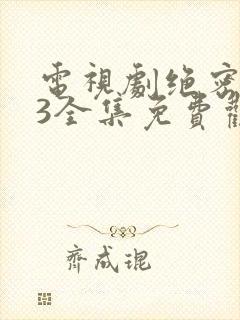 電視劇绝密
3全集免費
齊成琨